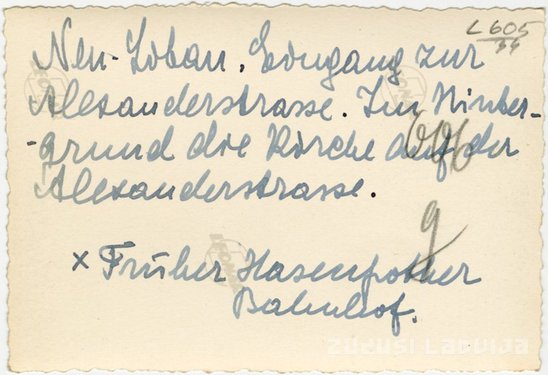 L 605
44
Neu-Libau. Eingang zur
Alexanderstrasse. Im Hinter-
-grund die Kirche auf der
Alexanderstrasse.
x Früher Hasenpother
Bahnhof.
g
ZUDUSI LATVIJA